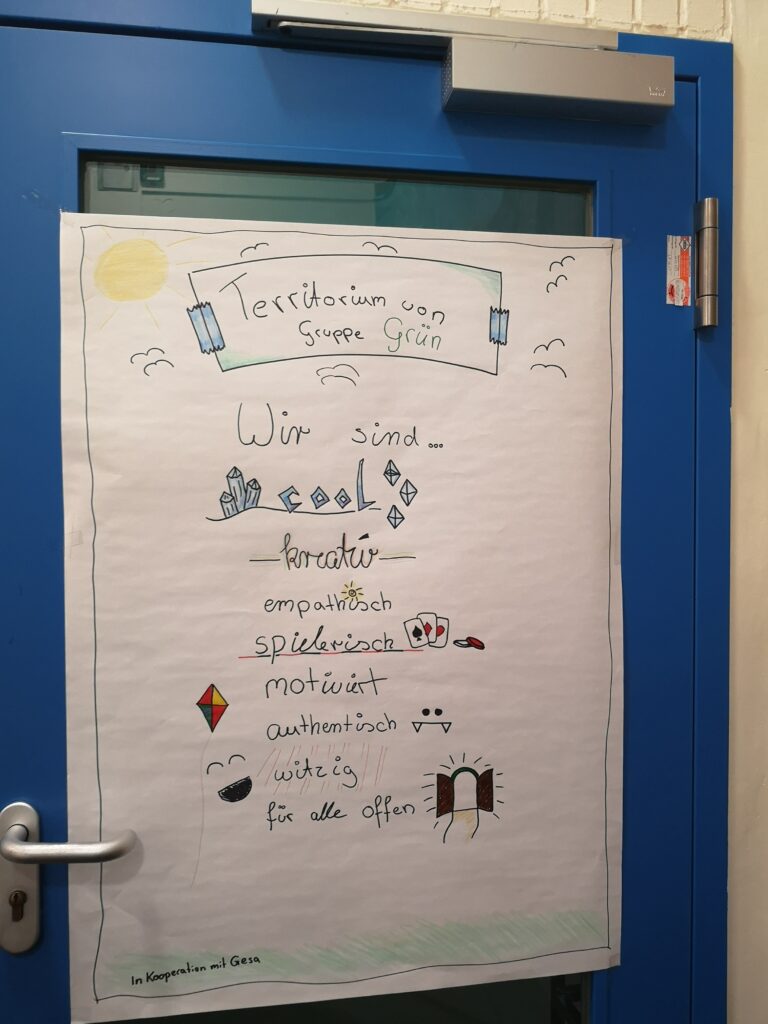 Territorium von
Gruppe Grün
Wir sind...
cool
kreativ
empathisch
spielerisch
motiviert
authentisch
witzig
für alle offen
In Kooperation mit Gesa